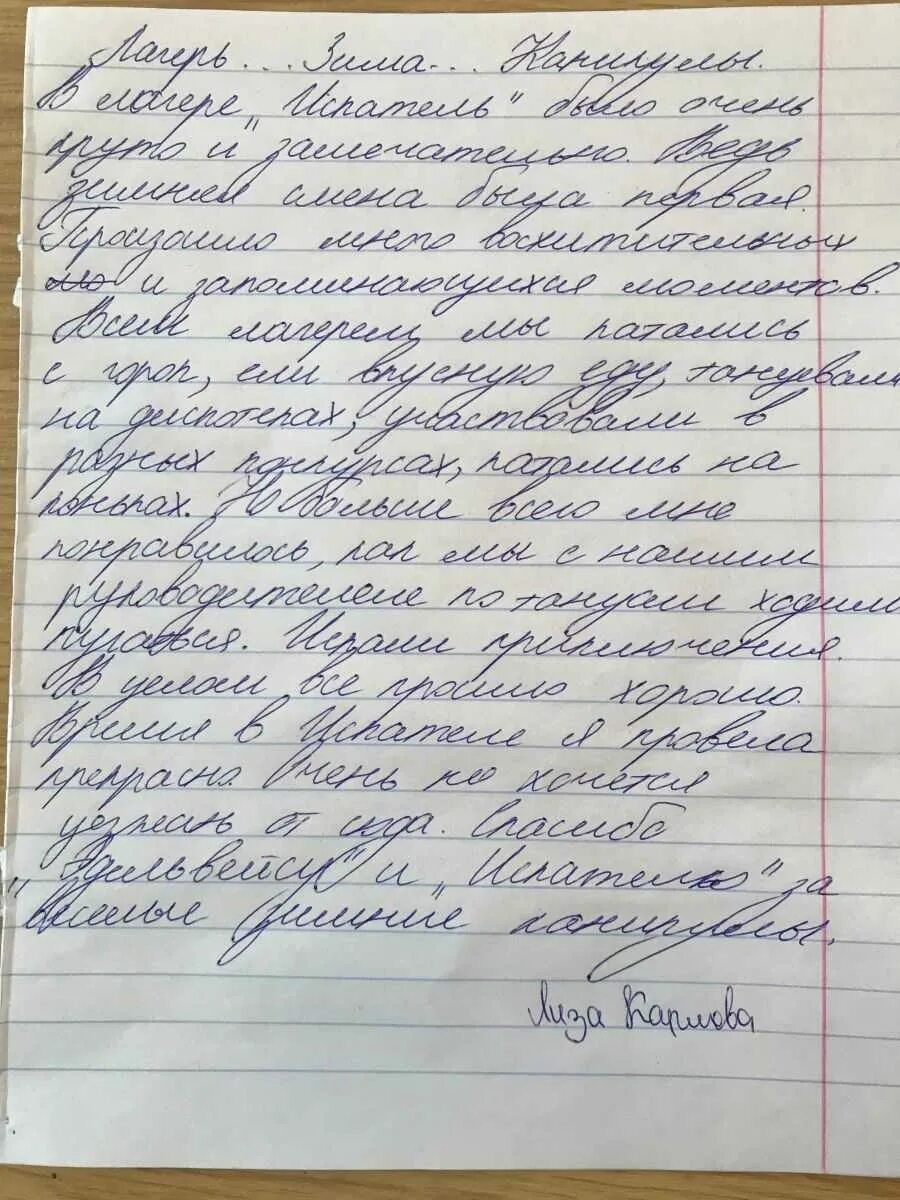 Лагерь... Зима... Каникулы.
В лагере „Искатель" было очень
круто и замечательно. Ведь
зимняя смена была первая.
Произошло много восхитительных
мо и запоминающихся моментов.
Всем лагерем мы катались
с горок, ели вкусную еду, танцевали
на дискотеках, участвовали в
разных конкурсах, катались на
коньках. Но больше всего мне
понравилось, как мы с нашим
руководителем по танцам ходили
пугаться. Искали приключения.
В целом все прошло хорошо.
Время в Искателе я провела
прекрасно. Очень не хочется
уезжать от сюда. Спасибо
„Эдельвейсу" и „Искателю" за
веселые зимние каникулы.
Лиза Карлова